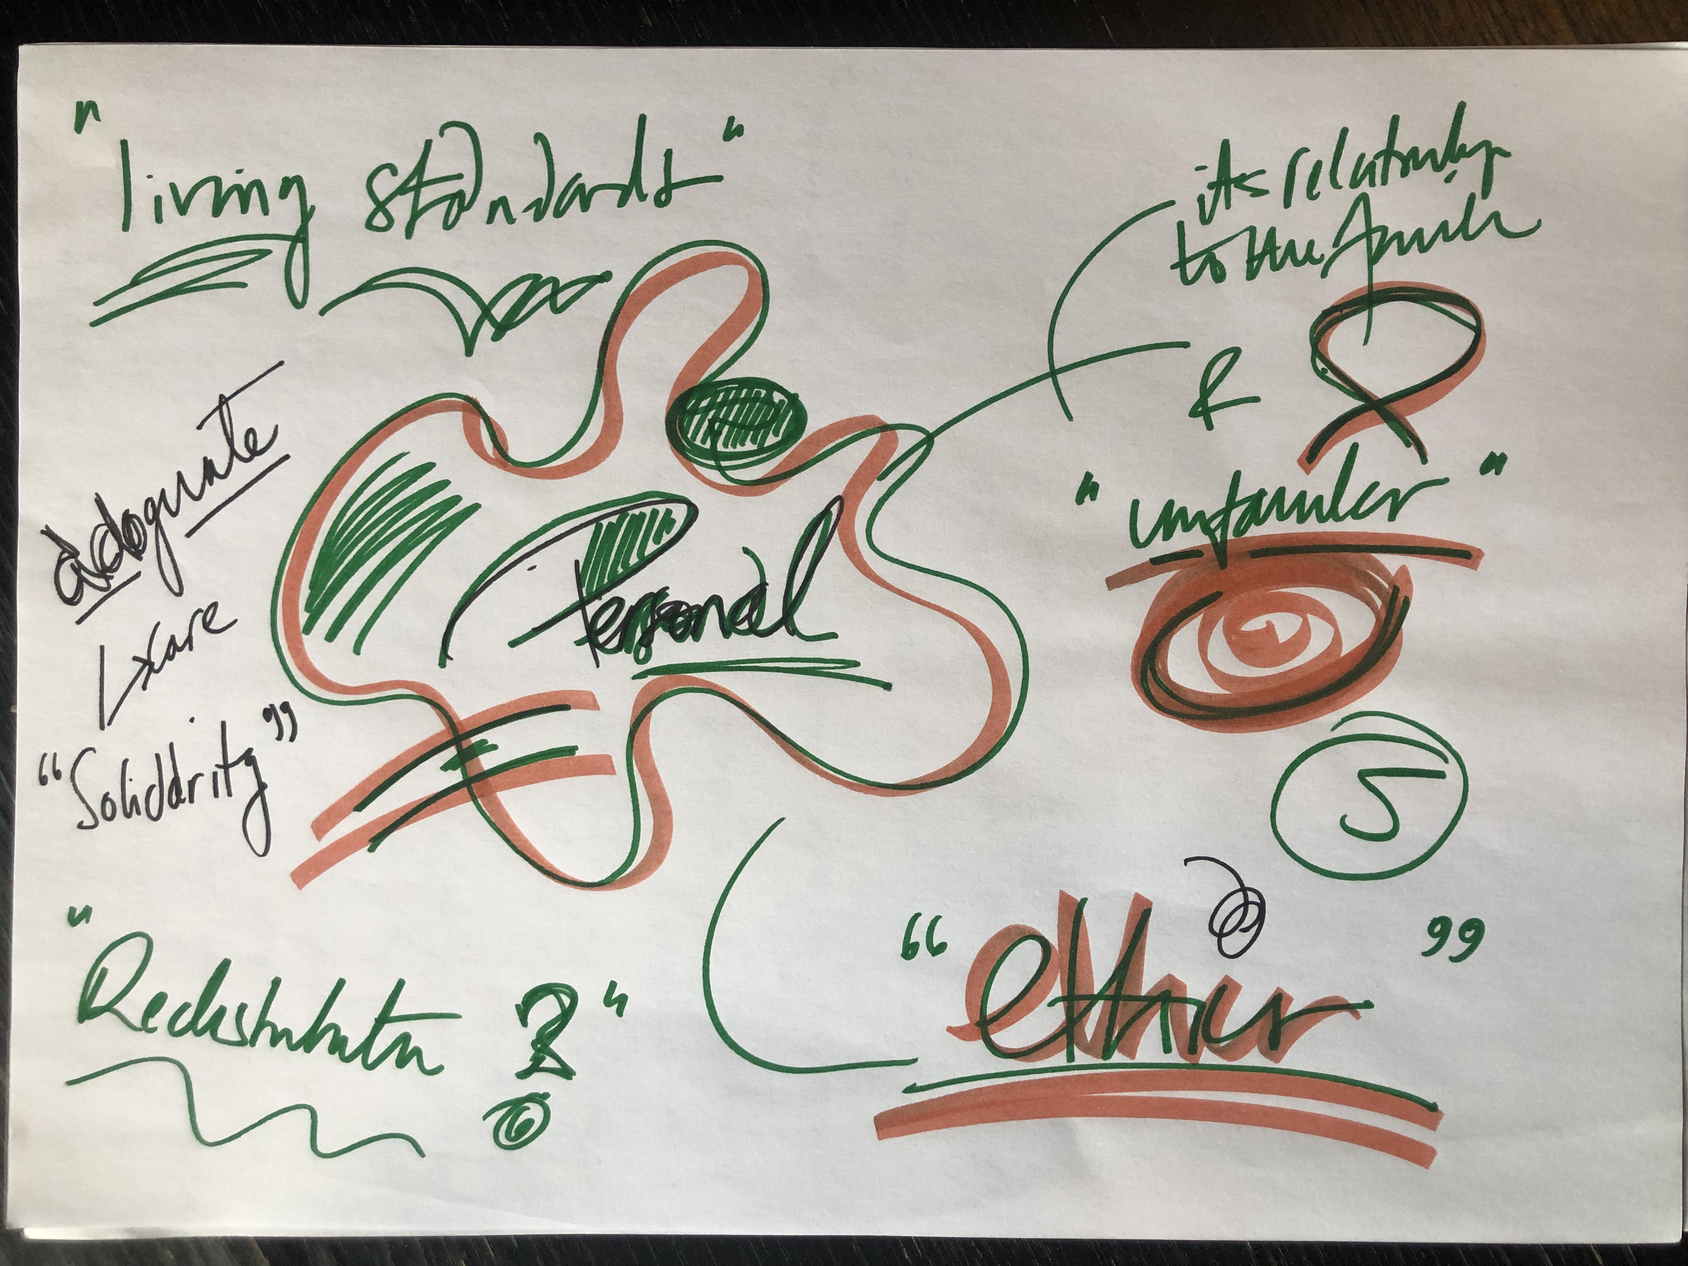 "living standards"
its relationship
to the family
&
"unfamiliar"
adequate
"Soliddrity"
Personal
5
"Redistribution ?"
"ethics"